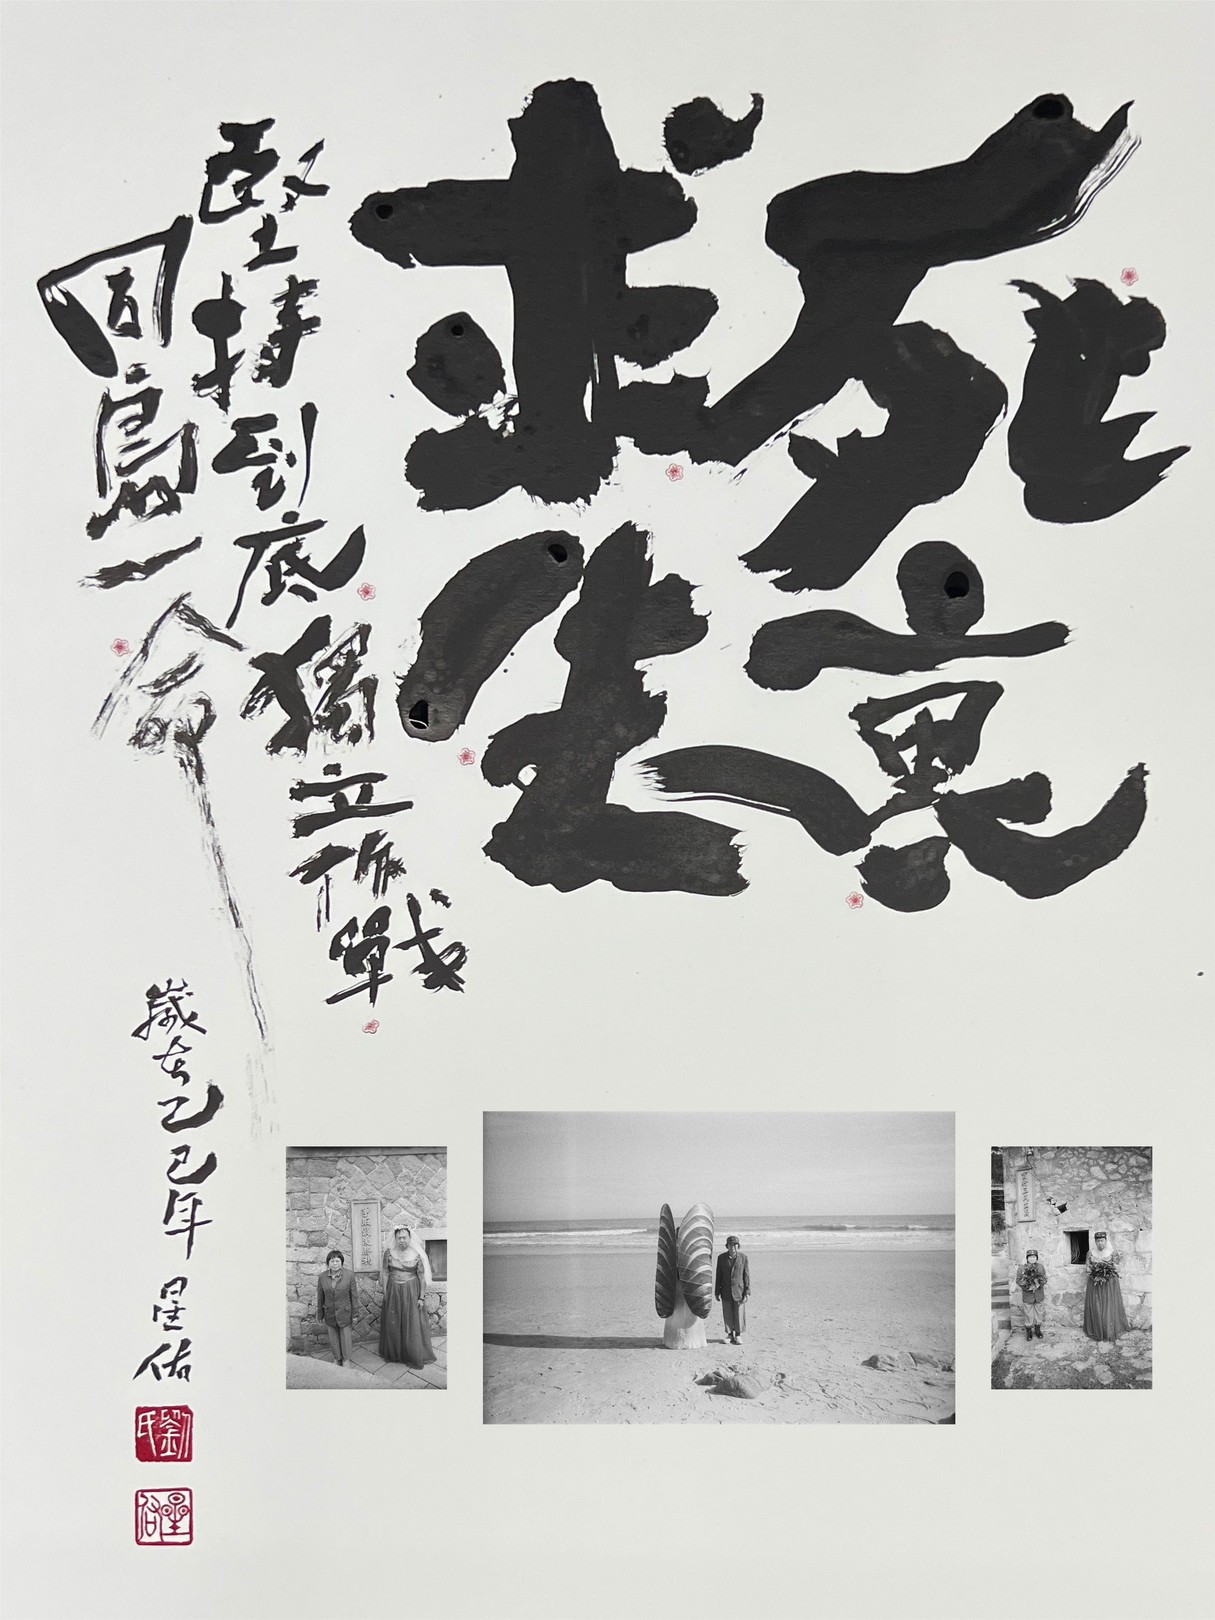 死裏
求生
堅持到底獨立作戰
同島一命
歲在乙巳年 星佑
劉氏
星佑